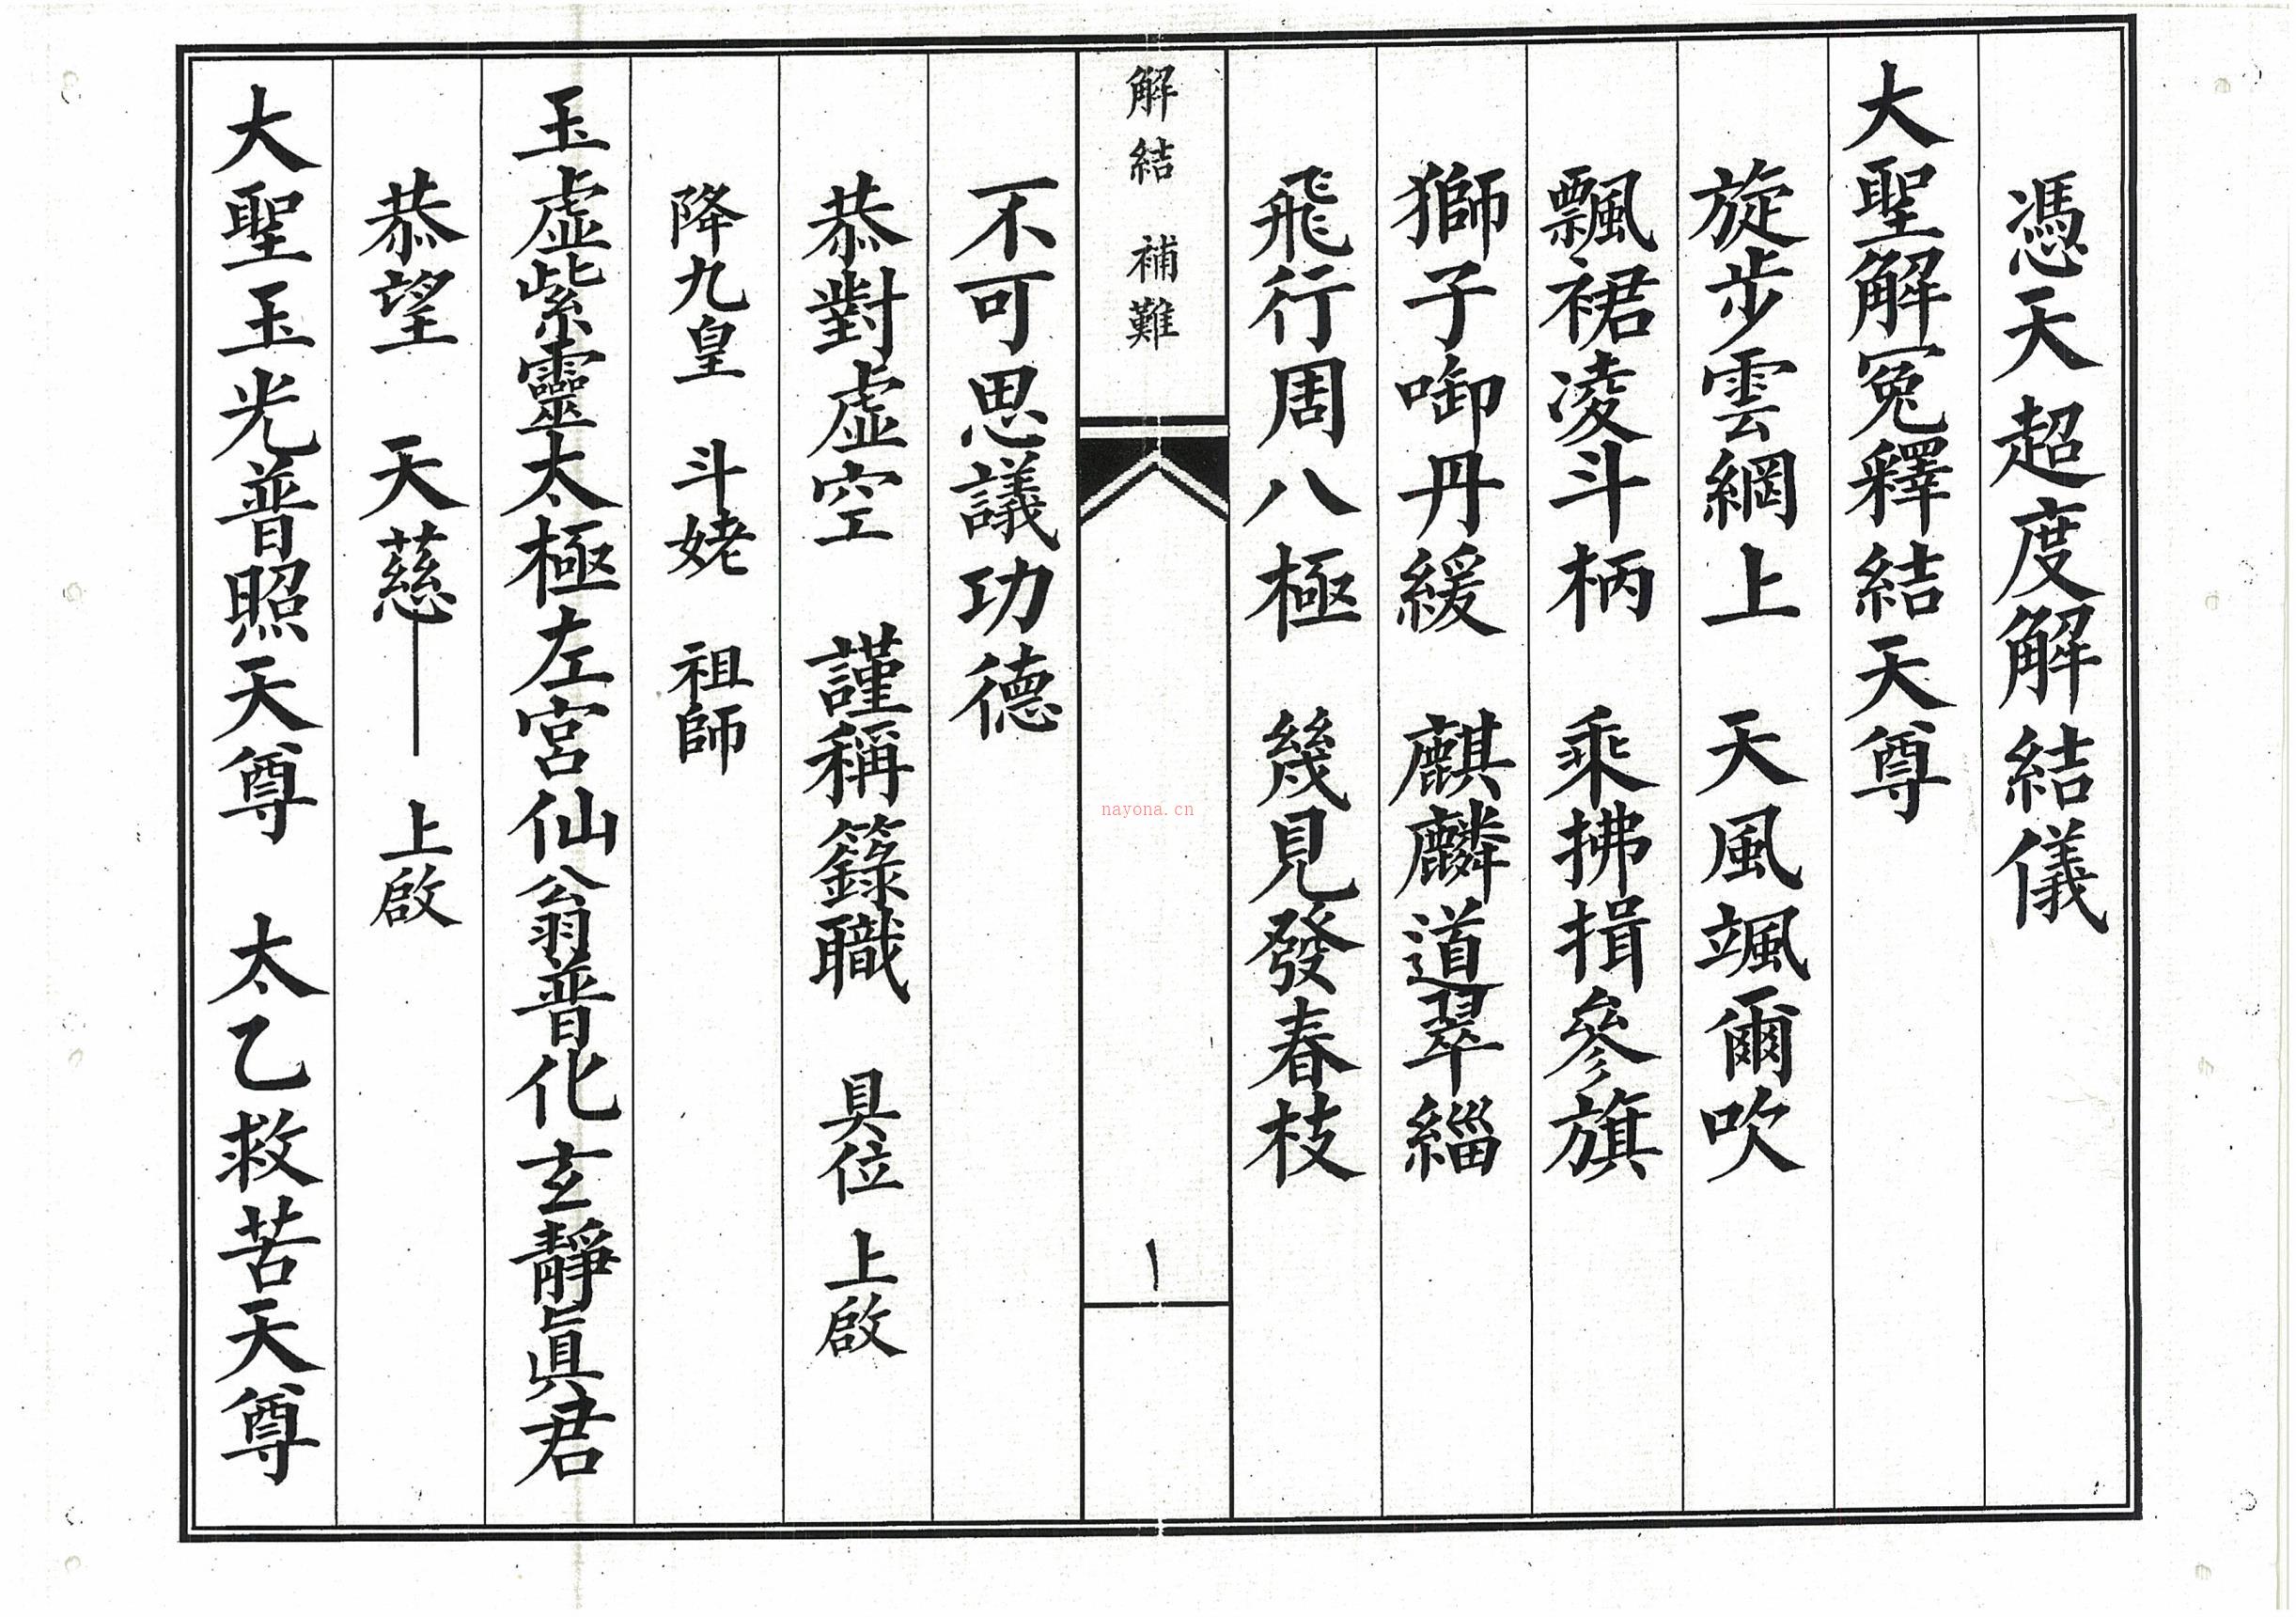 憑天超度解結儀
大聖解冤釋結天尊
旋步雲綱上　天風颯爾吹
飄裙凌斗柄　乘拂揖參旗
獅子啣丹緩　麒麟道翠緇
飛行周八極　幾見發春枝
解結　補難
一
不可思議功德
恭對虛空　謹稱籙職　具位　上啟
降九皇　斗姥　祖師
玉虛紫靈太極左宮仙翁普化玄靜眞君
恭望　天慈——上啟
大聖玉光普照天尊　太乙救苦天尊
nayona.cn